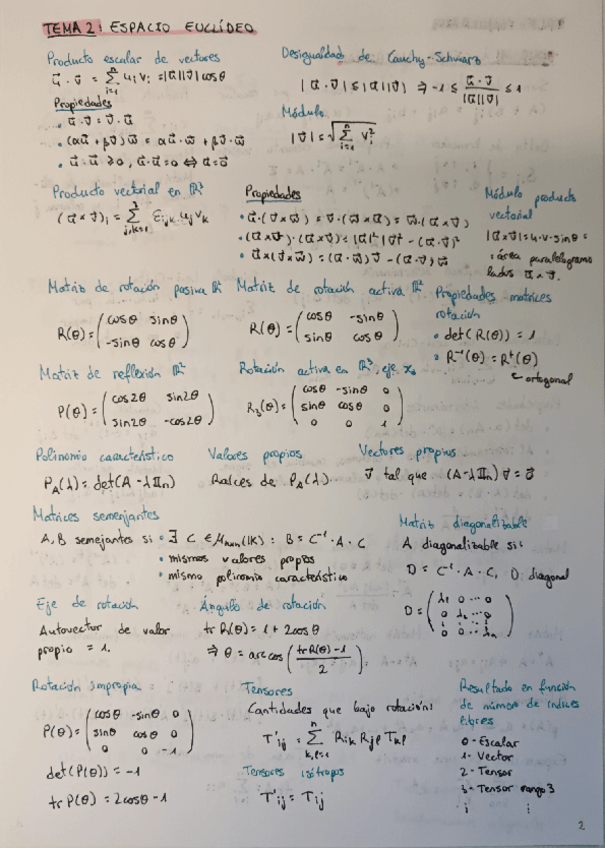 TEMA 2: ESPACIO EUCLÍDEO
Producto escalar de vectores
u⃗ · v⃗ = Σ_{i=1}^{n} u_i v_i = |u⃗||v⃗| cos θ
Propiedades
• u⃗ · v⃗ = v⃗ · u⃗
• (αu⃗ + βv⃗) w⃗ = αu⃗ · w⃗ + βv⃗ · w⃗
• u⃗ · u⃗ ≥ 0, u⃗ · u⃗ = 0 ⇔ u⃗ = 0⃗
Desigualdad de Cauchy-Schwarz
|u⃗ · v⃗| ≤ |u⃗||v⃗| ⇒ -1 ≤ (u⃗ · v⃗)/(|u⃗||v⃗|) ≤ 1
Módulo
|v⃗| = √(Σ_{i=1}^{n} v_i²)
Producto vectorial en ℝ³
(u⃗ × v⃗)_i = Σ_{j,k=1}^{3} ε_{ijk} u_j v_k
Propiedades
• u⃗ · (v⃗ × w⃗) = v⃗ · (w⃗ × u⃗) = w⃗ · (u⃗ × v⃗)
• (u⃗ × v⃗) · (u⃗ × v⃗) = |u⃗|² |v⃗|² - (u⃗ · v⃗)²
• u⃗ × (v⃗ × w⃗) = (u⃗ · w⃗) v⃗ - (u⃗ · v⃗) w⃗
Módulo producto
vectorial
|u⃗ × v⃗| = u · v · sin θ =
= área paralelogramo
lados u⃗ × v⃗.
Matriz de rotación pasiva ℝ²
R(θ) = ( cos θ sin θ
-sin θ cos θ )
Matriz de rotación activa ℝ²
R(θ) = ( cos θ -sin θ
sin θ cos θ )
Propiedades matrices
rotación
• det(R(θ)) = 1
• R⁻¹(θ) = Rᵗ(θ)
ortogonal
Matriz de reflexión ℝ²
P(θ) = ( cos 2θ sin 2θ
sin 2θ -cos 2θ )
Rotación activa en ℝ³, eje x₃
R₃(θ) = ( cos θ -sin θ 0
sin θ cos θ 0
0 0 1 )
Polinomio característico
P_A(λ) = det(A - λ𝟙n)
Valores propios
Raíces de P_A(λ).
Vectores propios
v⃗ tal que (A - λ𝟙n) v⃗ = 0⃗
Matrices semenjantes
A, B semejantes si • ∃ C ∈ M_{nxn}(𝕂) : B = C⁻¹ · A · C
• mismos valores propios
• mismo polinomio característico
Matriz diagonalizable
A diagonalizable si:
D = C⁻¹ · A · C, D diagonal
D = ( λ₁ 0 ⋯ 0
0 λ₂ ⋯ 0
⋮ 0 ⋱ ⋮
0 0 ⋯ λn )
Eje de rotación
Autovector de valor
propio = 1.
Ángulo de rotación
tr R(θ) = 1 + 2cos θ
⇒ θ = arc cos( (tr R(θ) - 1)/2 ).
Rotación impropia
P(θ) = ( cos θ -sin θ 0
sin θ cos θ 0
0 0 -1 )
det(P(θ)) = -1
tr P(θ) = 2cos θ - 1
Tensores
Cantidades que bajo rotación:
T'_{ij} = Σ_{k,l=1}^{n} R_{ik} R_{jl} T_{kl}
Tensores isótropos
T'_{ij} = T_{ij}
Resultado en función
de número de índices
libres
0 - Escalar
1 - Vector
2 - Tensor
3 - Tensor rango 3
⋮ ⋮
2